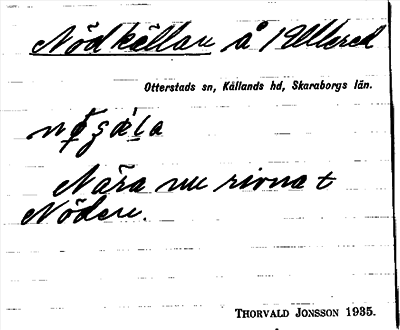 Nödkällan å 1 Ullered
Otterstads sn, Kållands hd, Skaraborgs län.
Nära nu rivna t
Nöden.
THORVALD JONSSON 1935.